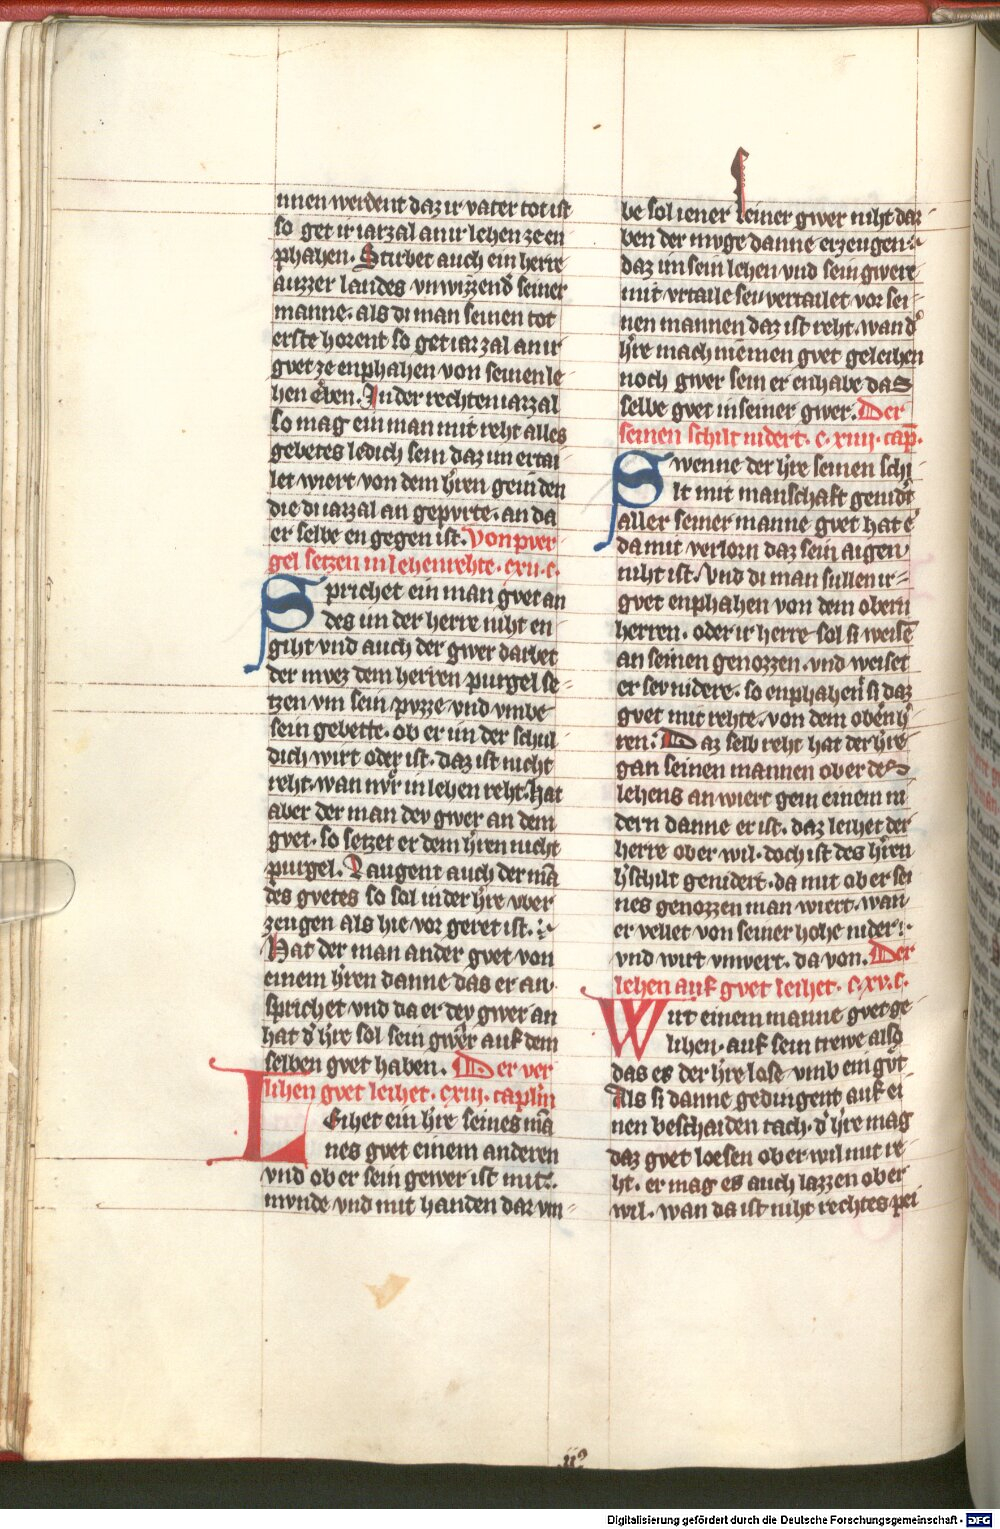 nnen werdent daz ir vater tot ist
so get ir iarzal an ir lehen ze en
phahen. Stirbet auch ein herre
auzzer landes vnwizzend seiner
manne. als di man seinen tot
erste horent so get iarzal an ir
gvet ze enphahen von seinen le
hen eben. In der rechten iarzal
so mag ein man mit reht alles
gebetes ledich sein daz im ertai
let wiert von dem hren gein den
die di iarzal an gepvrte. an da
er selbe en gegen ist. Von pver
gel setzen in lehenrehte. cxii. c.
Sprichet ein man gvet an
des im der herre niht en
giht vnd auch der gwer darbet
der mvez dem herren purgel se
tzen vm sein pvzze vnd vmbe
sein gebette. ob er im der schul
dich wirt oder ist. daz ist nicht
reht. wan nvr in lehen reht. Hat
aber der man dev gwer an dem
gvet. so setzet er dem hren nicht
purgel. Laugent auch der mā
des gvetes so sol in der hre vber
zeugen als hie vor geret ist.
Hat der man ander gvet von
einem hren danne das er an
sprichet vnd da er dev gwer an
hat d hre sol sein gwer auf dem
selben gvet haben. Der ver
lihen gvet leihet. cxiii. caplm
Leihet ein hre seines mā
nes gvet einem anderen
vnd ob er sein gewer ist mit
mvnde vnd mit handen daz vm
be sol iener seiner gwer niht dar
ben der mvge danne erzeugen
daz im sein lehen vnd sein gwere
mit vrtaile sei vertailet vor sei
nen mannen daz ist reht. wan d
hre mach niemen gvet geleihen
noch gwer sein er enhabe das
selbe gvet in seiner gwer. Der
seinen schilt nidert. c. xiiii. cap.
Swenne der hre seinen schi
lt mit manschaft genidt
aller seiner manne gvet hat e
da mit verlorn daz sein aigen
niht ist. Vnd di man sullen ir
gvet enphahen von dem obern
herren. oder ir herre sol si weisē
an seinen genozzen. vnd weiset
er sev nidere. so enphahen si daz
gvet mit rehte. von dem obern h
ren. Daz selb reht hat der hre
gan seinen mannen ober des
lehens an wiert gein einem ni
dern danne er ist. daz leihet der
herre ober wil. doch ist des hren
hschilt genidert. da mit ob er sei
nes genozzen man wiert. wan
er vellet von seiner hohe nider
vnd wirt vnwert. da von. Der
lehen auf gvet leihet. c. xv. c.
Wirt einem manne gvet ge
lihen. auf sein trewe also
das es der hre lose vmb ein gvt
Als si danne gedingent auf ei
nen beschaiden tach. d hre mag
daz gvet loesen ober wil mit re
ht. er mag es auch lazzen ober
wil. wan da ist niht rechtes pei
Digitalisierung gefördert durch die Deutsche Forschungsgemeinschaft - DFG